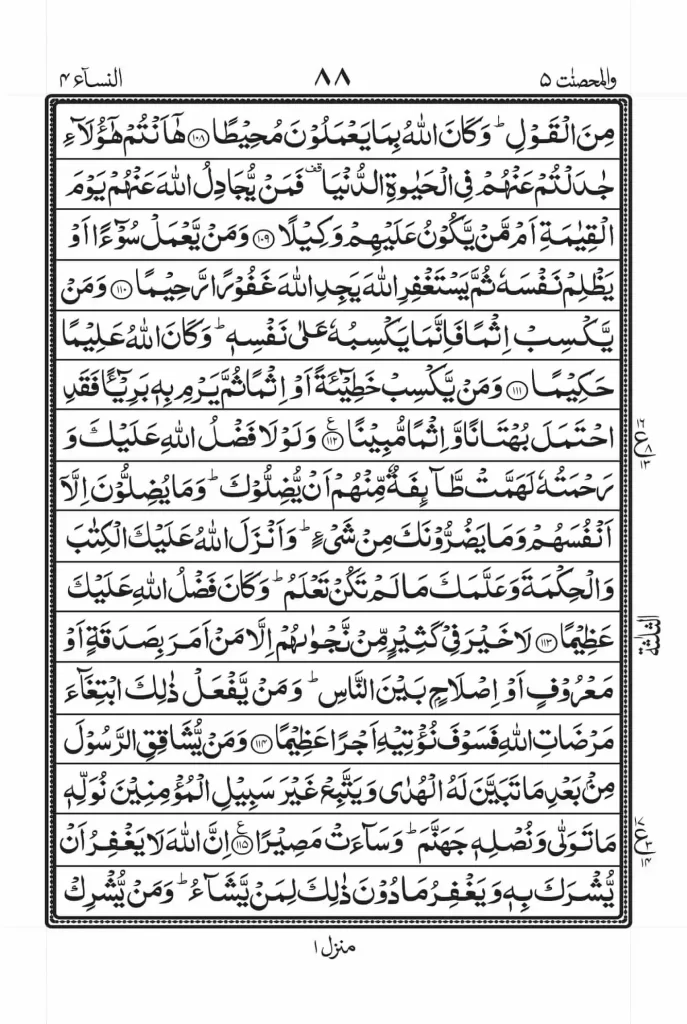 والمحصنٰت ۵
۸۸
النسآء ۴
مِنَ الْقَوْلِ ؕ وَكَانَ اللّٰهُ بِمَا یَعْمَلُوْنَ مُحِیْطًا ﴿۱۰۸﴾ هٰۤاَنْتُمْ هٰۤؤُلَآءِ
جٰدَلْتُمْ عَنْهُمْ فِی الْحَیٰوةِ الدُّنْیَا ۫ فَمَنْ یُّجَادِلُ اللّٰهَ عَنْهُمْ یَوْمَ
الْقِیٰمَةِ اَمْ مَّنْ یَّكُوْنُ عَلَیْهِمْ وَكِیْلًا ﴿۱۰۹﴾ وَمَنْ یَّعْمَلْ سُوْٓءًا اَوْ
یَظْلِمْ نَفْسَهٗ ثُمَّ یَسْتَغْفِرِ اللّٰهَ یَجِدِ اللّٰهَ غَفُوْرًا رَّحِیْمًا ﴿۱۱۰﴾ وَمَنْ
یَّكْسِبْ اِثْمًا فَاِنَّمَا یَكْسِبُهٗ عَلٰی نَفْسِهٖ ؕ وَكَانَ اللّٰهُ عَلِیْمًا
حَكِیْمًا ﴿۱۱۱﴾ وَمَنْ یَّكْسِبْ خَطِیْٓئَةً اَوْ اِثْمًا ثُمَّ یَرْمِ بِهٖ بَرِیْٓئًا فَقَدِ
احْتَمَلَ بُهْتَانًا وَّاِثْمًا مُّبِیْنًا ﴿۱۱۲﴾ وَلَوْلَا فَضْلُ اللّٰهِ عَلَیْكَ وَ
رَحْمَتُهٗ لَهَمَّتْ طَّآىِٕفَةٌ مِّنْهُمْ اَنْ یُّضِلُّوْكَ ؕ وَمَا یُضِلُّوْنَ اِلَّاۤ
اَنْفُسَهُمْ وَمَا یَضُرُّوْنَكَ مِنْ شَیْءٍ ؕ وَاَنْزَلَ اللّٰهُ عَلَیْكَ الْكِتٰبَ
وَالْحِكْمَةَ وَعَلَّمَكَ مَا لَمْ تَكُنْ تَعْلَمُ ؕ وَكَانَ فَضْلُ اللّٰهِ عَلَیْكَ
عَظِیْمًا ﴿۱۱۳﴾ لَا خَیْرَ فِیْ كَثِیْرٍ مِّنْ نَّجْوٰىهُمْ اِلَّا مَنْ اَمَرَ بِصَدَقَةٍ اَوْ
مَعْرُوْفٍ اَوْ اِصْلَاحٍۭ بَیْنَ النَّاسِ ؕ وَمَنْ یَّفْعَلْ ذٰلِكَ ابْتِغَآءَ
مَرْضَاتِ اللّٰهِ فَسَوْفَ نُؤْتِیْهِ اَجْرًا عَظِیْمًا ﴿۱۱۴﴾ وَمَنْ یُّشَاقِقِ الرَّسُوْلَ
مِنْۢ بَعْدِ مَا تَبَیَّنَ لَهُ الْهُدٰی وَیَتَّبِعْ غَیْرَ سَبِیْلِ الْمُؤْمِنِیْنَ نُوَلِّهٖ
مَا تَوَلّٰی وَنُصْلِهٖ جَهَنَّمَ ؕ وَسَآءَتْ مَصِیْرًا ﴿۱۱۵﴾ اِنَّ اللّٰهَ لَا یَغْفِرُ اَنْ
یُّشْرَكَ بِهٖ وَیَغْفِرُ مَا دُوْنَ ذٰلِكَ لِمَنْ یَّشَآءُ ؕ وَمَنْ یُّشْرِكْ
الثلٰثة
منزل ۱